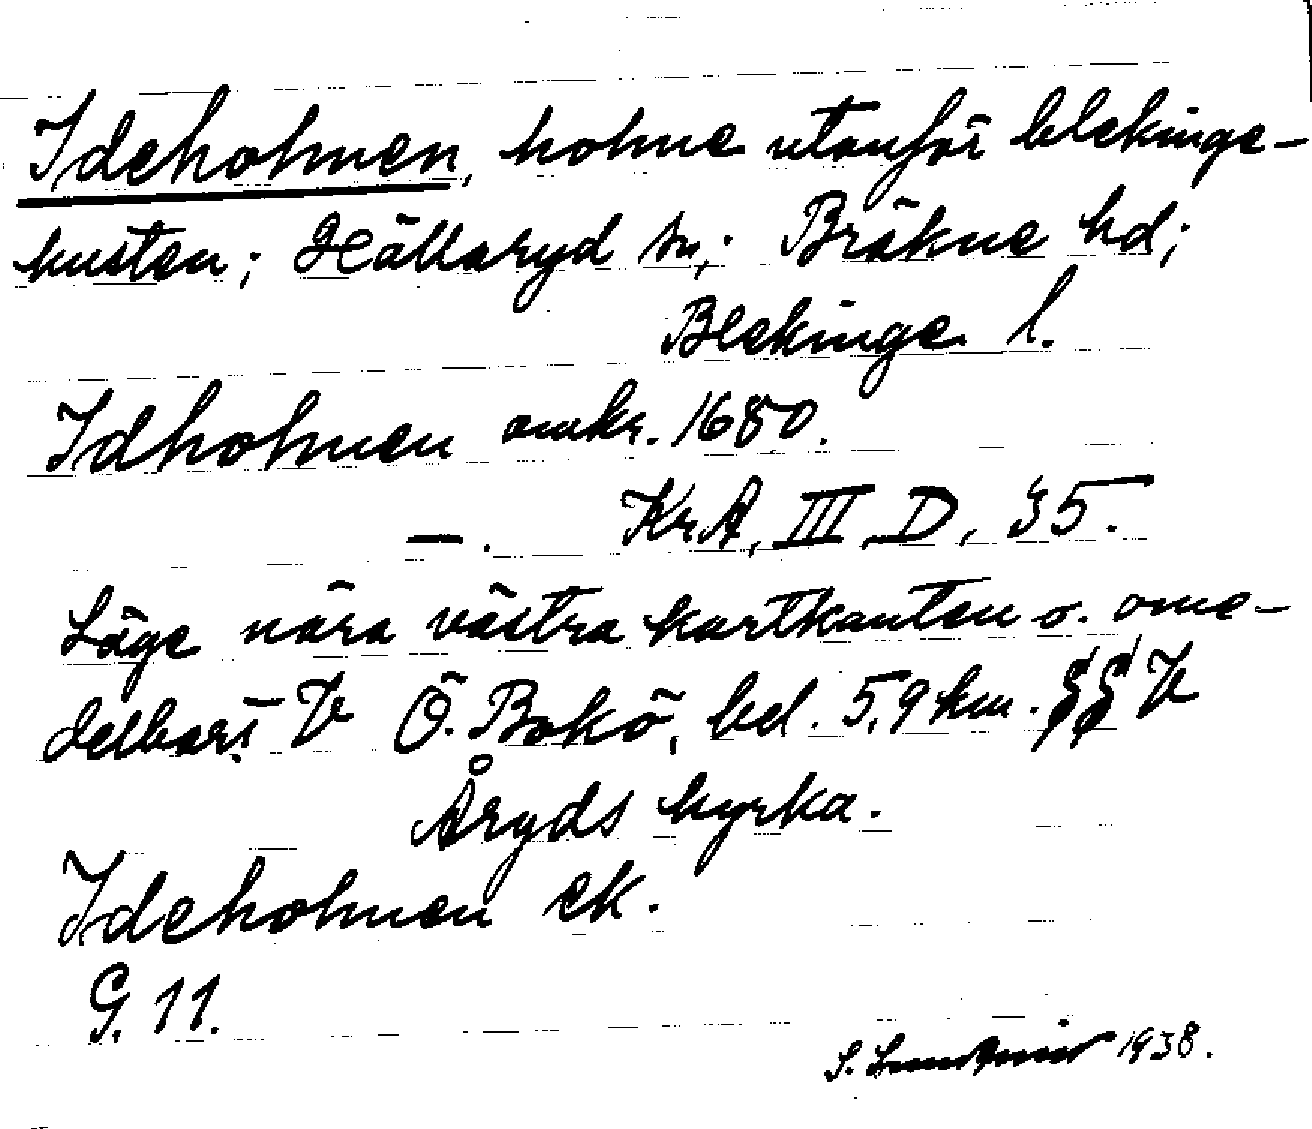 Ideholmen, holme utanför blekinge-
kusten; Hällaryd sn; Bräkne hd;
Blekinge l.
Idholmen omkr. 1680.
—. KrA, III, D, 35.
Läge nära västra kartkanten o. ome-
delbart V Ö. Bokö, bel. 5,9 km. V
Åryds kyrka.
Ideholmen ek.
G. 11.
S. 1938.